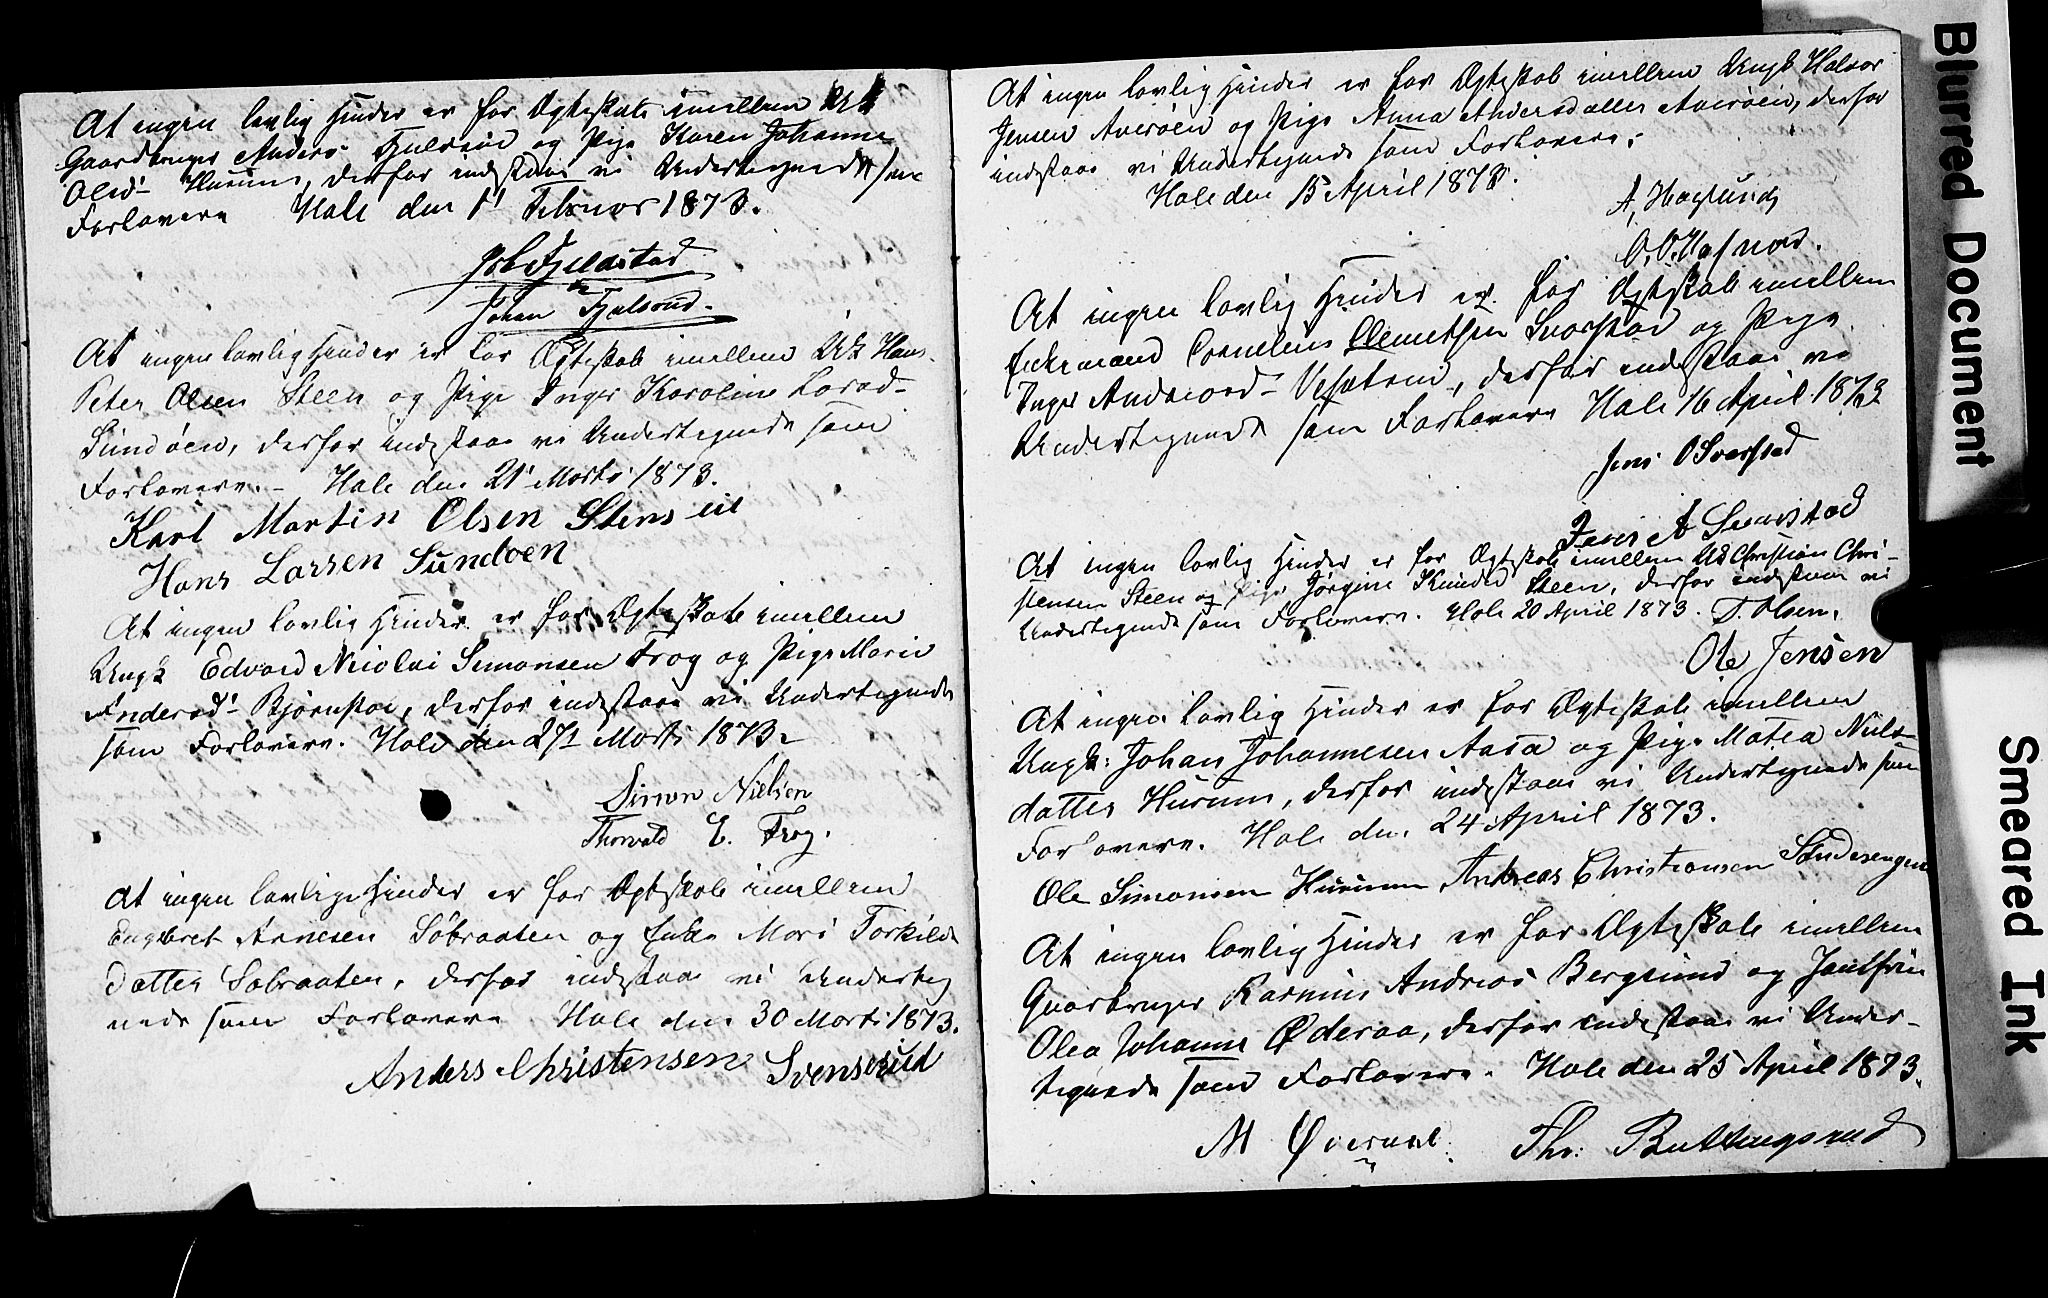 At ingen lovlig Hinder er for Ægteskab imellem Uk
Gaardbruger Anders Fjelsrud og Pige Karen Johanne
Olsd. Hurum, derfor indstaae vi Undertegnede som
Forlovere Hole den 1' Februar 1873.
Fjeldstad
Johan Fjelsrud.
At ingen lovlig Hinder er for Ægteskab imellem Uk Hans
Peter Olsen Steen og Pige Inger Karoline Larsd-
Sundøen, derfor indstaae vi Undertegnede som
Forlovere. - Hole den 21' Marts 1873.
Karl Martin Olsen Stens eie
Hans Larsen Sundøen
At ingen lovlig Hinder er for Ægteskab imellem
Ungk Edvard Nicolai Simonsen Frog og Pige Marie
Andersd. Bjørnstad, derfor indstaae vi Undertegnede
som Forlovere. Hole den 27' Marts 1873.
Simon Nielsen
Thorvald E. Frog.
At ingen lovlige Hinder er for Ægteskab imellem
Engebret Arnesen Søbraaten og Enke Mari Torkilds
datter Søbraaten, derfor indstaae vi Underteg
nede som Forlovere Hole den 30 Marts 1873.
Anders Christensen Svensrud
At ingen lovlig Hinder er for Ægteskab imellem Ungk Halvor
Jensen Averøen og Pige Anna Andersdatter Averøen, derfor
indstaae vi Undertegnede som Forlovere.
Hole den 15 April 1873.
A. Hagsund
O. O. Hafnor.
At ingen lovlig Hinder er for Ægteskab imellem
Enkemand Cornelius Clemetsen Svarstad og Pige
Inger Andersd- Vestern, derfor indstaae vi
Undertegnede som Forlovere Hole 16 April 1873
Jens O Svarstad
A Svarstad
At ingen lovlig Hinder er for Ægteskab imellem Uk Christian Chri-
stensen Steen og Pige Jørgine Knudsd Steen, derfor indstaae vi
Undertegnede som Forlovere. Hole 20 April 1873. T. Olsen.
Ole Jensen
At ingen lovlig Hinder er for Ægteskab imellem
Ungk: Johan Johannesen Aasa og Pige Matea Niels-
datter Hurum, derfor indstaae vi Undertegnede som
Forlovere. Hole den 24 April 1873.
Ole Simonsen Hurum Andreas Christiansen Søndresengen
At ingen lovlig Hinder er for Ægteskab imellem
Gaardbruger Rasmus Andreas Bergsund og Jomfrue
Olea Johanne Øderaa, derfor indstaae vi Under-
tegnede som Forlovere. Hole den 25 April 1873.
M Øderaae. Thr: Buttingsrud
Blurred Document
Smeared Ink